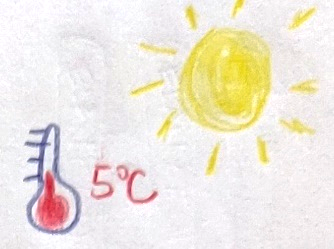 5°C